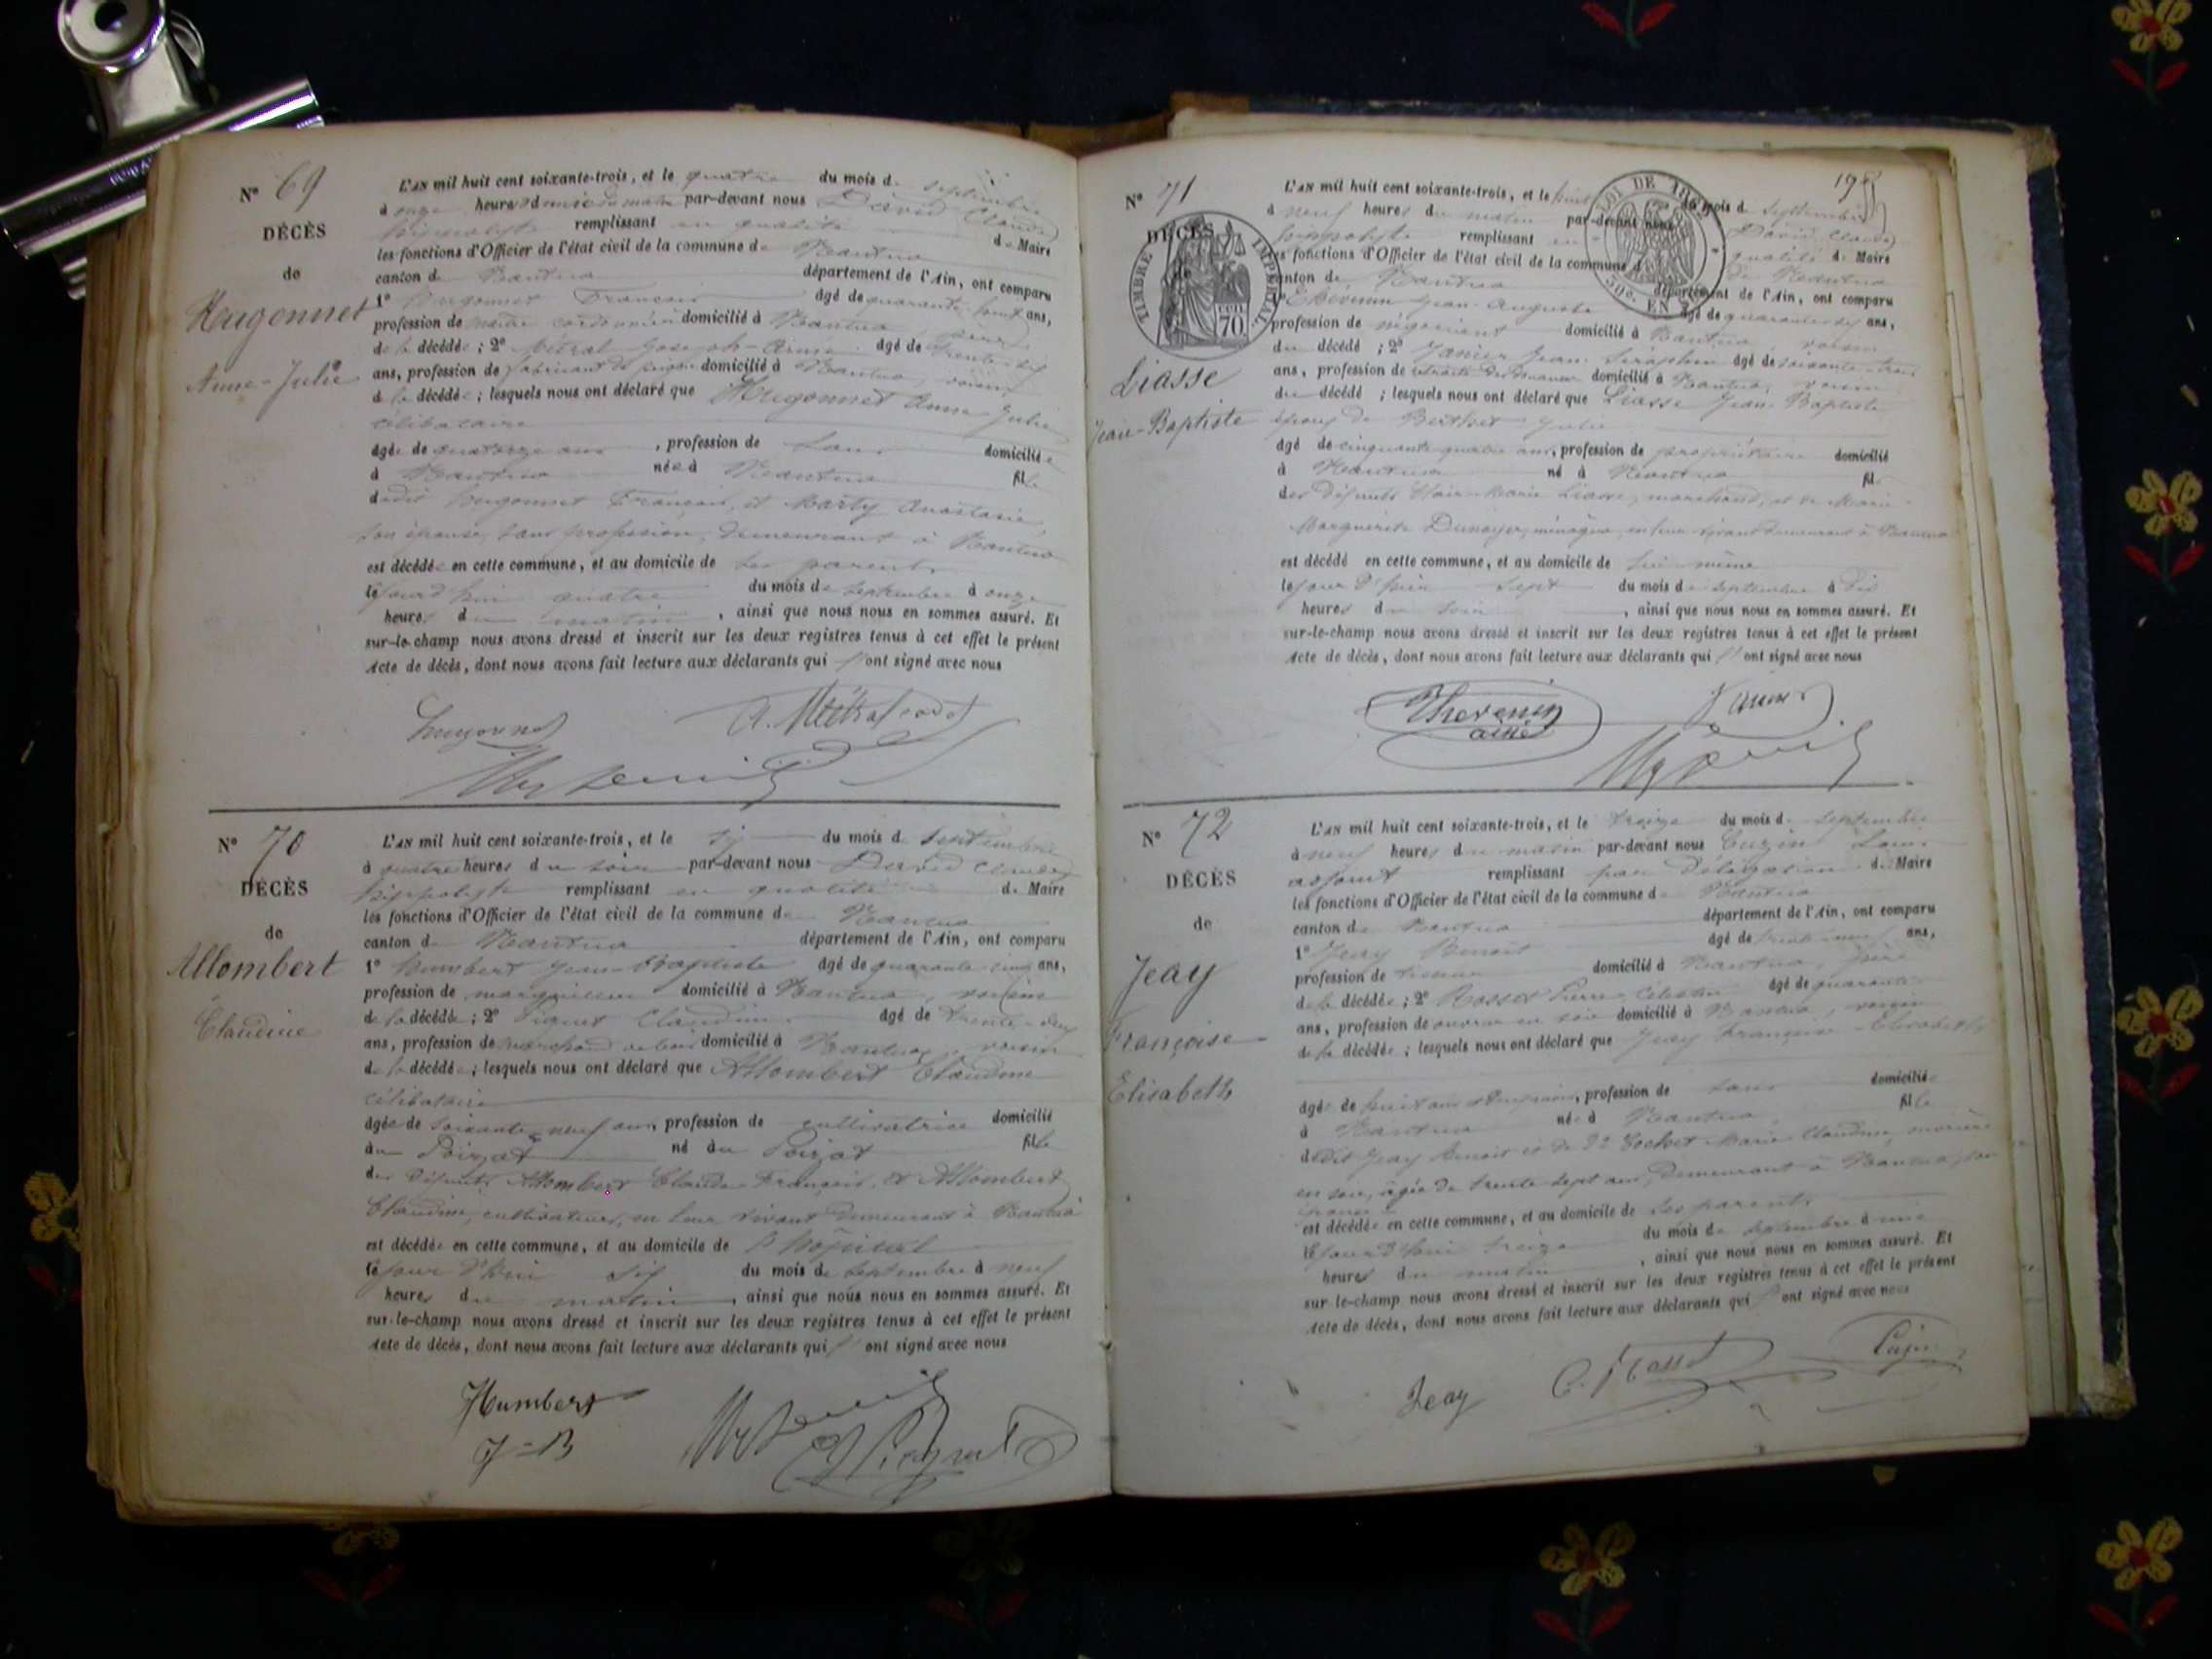 N° 69
DÉCÈS
de
Hugonnet
Anne-Julie
L'AN mil huit cent soixante-trois, et le quatre du mois de septembre
à onze heures et demie du matin par-devant nous David Claude
hippolyte remplissant en qualité de Maire
les fonctions d'Officier de l'état civil de la commune de Nantua
canton de Nantua département de l'Ain, ont comparu
1° Hugonnet François âgé de quarante huit ans,
profession de maître cordonnier domicilié à Nantua, père
de la décédée ; 2° Métral Joseph âgé de trente six
ans, profession de fabricant de peignes domicilié à Nantua, voisin
de la décédée ; lesquels nous ont déclaré que Hugonnet Anne Julie
célibataire
âgée de quatorze ans, profession de sans domiciliée
à Nantua née à Nantua fille
dudit hugonnet François, et Marty Anastasie
son épouse, sans profession, demeurant à Nantua
est décédée en cette commune, et au domicile de ses parents
le jourd'hui quatre du mois de septembre à onze
heures du matin, ainsi que nous nous en sommes assuré. Et
sur-le-champ nous avons dressé et inscrit sur les deux registres tenus à cet effet le présent
Acte de décès, dont nous avons fait lecture aux déclarants qui ont signé avec nous
N° 70
DÉCÈS
de
Allombert
Claudine
L'AN mil huit cent soixante-trois, et le six du mois de septembre
à quatre heures du soir par-devant nous David Claude
hippolyte remplissant en qualité de Maire
les fonctions d'Officier de l'état civil de la commune de Nantua
canton de Nantua département de l'Ain, ont comparu
1° humbert Jean-Baptiste âgé de quarante cinq ans,
profession de marguillier domicilié à Nantua, voisin
de la décédée ; 2° Piquet Claudin âgé de trente-deux
ans, profession de marchand de bois domicilié à Nantua, voisin
de la décédée ; lesquels nous ont déclaré que Allombert Claudine
célibataire
âgée de soixante neuf ans, profession de cultivatrice domicilié
au Poizat né au Poizat fille
des défunts Allombert Claude François, et Allombert
Claudine, cultivateurs, en leur vivant demeurant à Nantua
est décédée en cette commune, et au domicile de l'hôpital
le jour d'hui six du mois de septembre à neuf
heures du matin, ainsi que nous nous en sommes assuré. Et
sur-le-champ nous avons dressé et inscrit sur les deux registres tenus à cet effet le présent
Acte de décès, dont nous avons fait lecture aux déclarants qui ont signé avec nous
Humbert
J=B
N° 71
DÉCÈS
de
TIMBRE IMPÉRIAL
70
Liasse
Jean-Baptiste
LOI DE
50c. EN
L'AN mil huit cent soixante-trois, et le huit du mois de septembre
à neuf heures du matin par-devant nous David Claude
hippolyte remplissant en qualité de Maire
les fonctions d'Officier de l'état civil de la commune de Nantua
canton de Nantua département de l'Ain, ont comparu
1° Thévenin Jean-Auguste âgé de ans,
profession de négociant domicilié à Nantua, voisin
du décédé ; 2° Janier Jean-Seraphin âgé de soixante-trois
ans, profession de retraité domicilié à Nantua, voisin
du décédé ; lesquels nous ont déclaré que Liasse Jean Baptiste
époux de Berthet Julie
âgé de cinquante quatre ans, profession de propriétaire domicilié
à Nantua né à Nantua fils
des défunts Marie Liasse, marchand, et de Marie
Marguerite Dunoyer, ménagère, en leur vivant demeurant à Nantua
est décédé en cette commune, et au domicile de lui-même
le jour d'hier sept du mois de septembre à dix
heures du soir, ainsi que nous nous en sommes assuré. Et
sur-le-champ nous avons dressé et inscrit sur les deux registres tenus à cet effet le présent
Acte de décès, dont nous avons fait lecture aux déclarants qui ont signé avec nous
Thevenin
aîné
Janier
N° 72
DÉCÈS
de
Jeay
Françoise
Elisabeth
L'AN mil huit cent soixante-trois, et le treize du mois de septembre
à neuf heures du matin par-devant nous Cuzin Louis
adjoint remplissant par délégation de Maire
les fonctions d'Officier de l'état civil de la commune de Nantua
canton de Nantua département de l'Ain, ont comparu
1° Jeay Benoit âgé de trente-neuf ans,
profession de tisseur domicilié à Nantua, père
de la décédée ; 2° Rosset Pierre Célestin âgé de quarante
ans, profession de ouvrier en soie domicilié à Nantua, voisin
de la décédée ; lesquels nous ont déclaré que Jeay Françoise Elisabeth
âgée de huit ans, profession de sans domiciliée
à Nantua née à Nantua fille
dudit Jeay Benoit et de Cochet Marie Claudine, ouvrière
en soie, âgée de trente-sept ans, demeurant à Nantua, son
épouse
est décédée en cette commune, et au domicile de ses parents
le jour d'hui treize du mois de septembre à une
heures du matin, ainsi que nous nous en sommes assuré. Et
sur-le-champ nous avons dressé et inscrit sur les deux registres tenus à cet effet le présent
Acte de décès, dont nous avons fait lecture aux déclarants qui ont signé avec nous
Jeay
C. Rosset
Cuzin